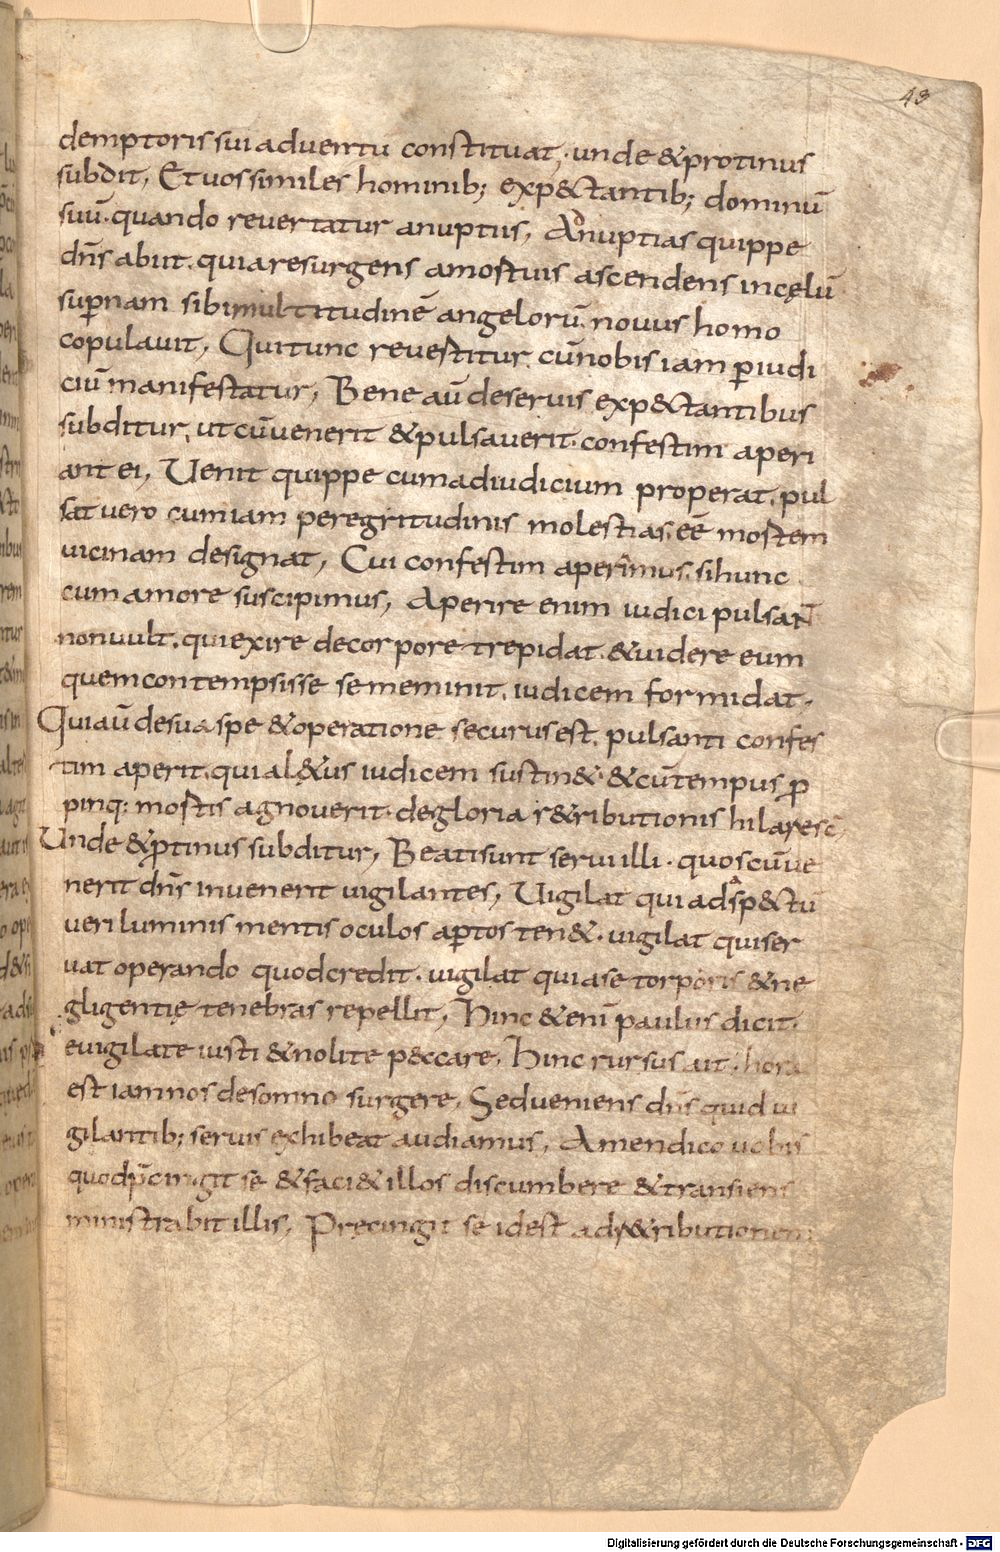 43
demptoris sui aduentu constituat, unde & protinus
subdit, Et uos similes hominib; exp&tantib; dominū
suū. quando reuertatur a nuptiis, Ad nuptias quippe
dn̄s abiit. quia resurgens a mortuis ascendens in cęlū
sup̄nam sibi multitudinē angelorū. nouus homo
copulauit, Qui tunc reuertitur. cū nobis iam p̄ iudi
ciū manifestatur, Bene aū de seruis exp&tantibus
subditur, ut cū uenerit & pulsauerit. confestim aperi
ant ei, Uenit quippe cum ad iudicium properat. pul
sat uero cum iam per egritudinis molestias. eē mortem
uicinam designat, Cui confestim aperimus. si hunc
cum amore suscipimus, Aperire enim iudici pulsanT
non uult. qui exire de corpore trepidat. & uidere eum
quem contempsisse se meminit. iudicem formidat.
Qui aū de sua spe & operatione securus est. pulsanti confes
tim aperit. qui al&us iudicem sustin&. & cū tempus p̄
pinq: mortis agnouerit. de gloria r&ributionis hilaresc̄
Unde & p̄tinus subditur, Beati sunt serui illi. quos cū ue
nerit dn̄s inuenerit uigilantes, Uigilat qui ad asp&tū
ueri luminis mentis oculos ap̄tos ten&. uigilat qui ser
uat operando quod credit. uigilat qui a se torporis & ne
gligentię tenebras repellit, Hinc & enī paulus dicit.
euigilate iusti & nolite p&care. Hinc rursus ait. hora
est iam nos de somno surgere. Sed ueniens dn̄s quid ui
gilantib; seruis exhibeat audiamus, Amen dico uobis
quod p̄cingit se & faci& illos discumbere & transiens
ministrabit illis, Pręcingit se id est ad r&ributionem
Digitalisierung gefördert durch die Deutsche Forschungsgemeinschaft - DFG